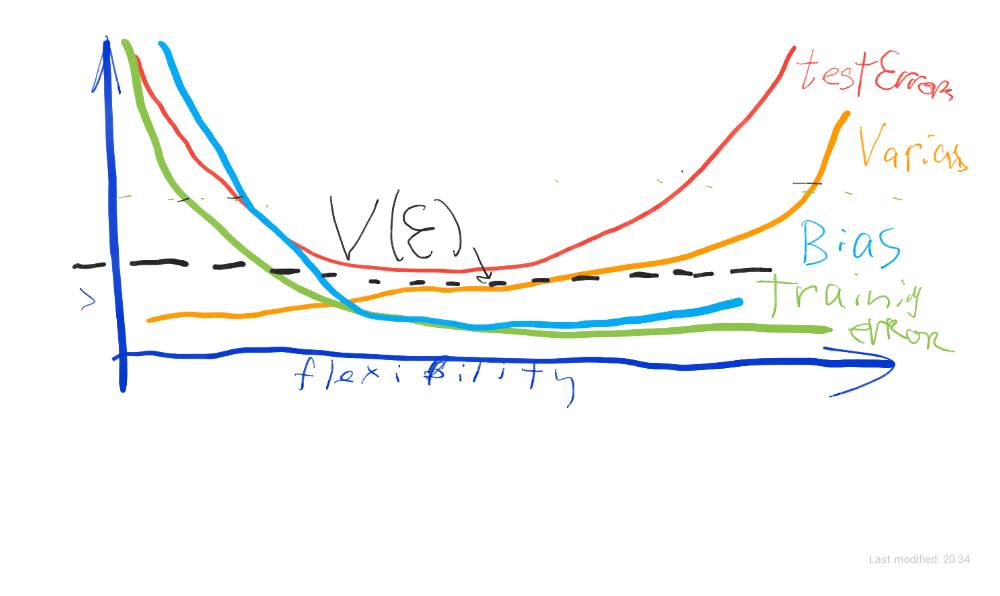 testError
V(ε)
Bias
training
error
flexibility
Last modified: 20:34